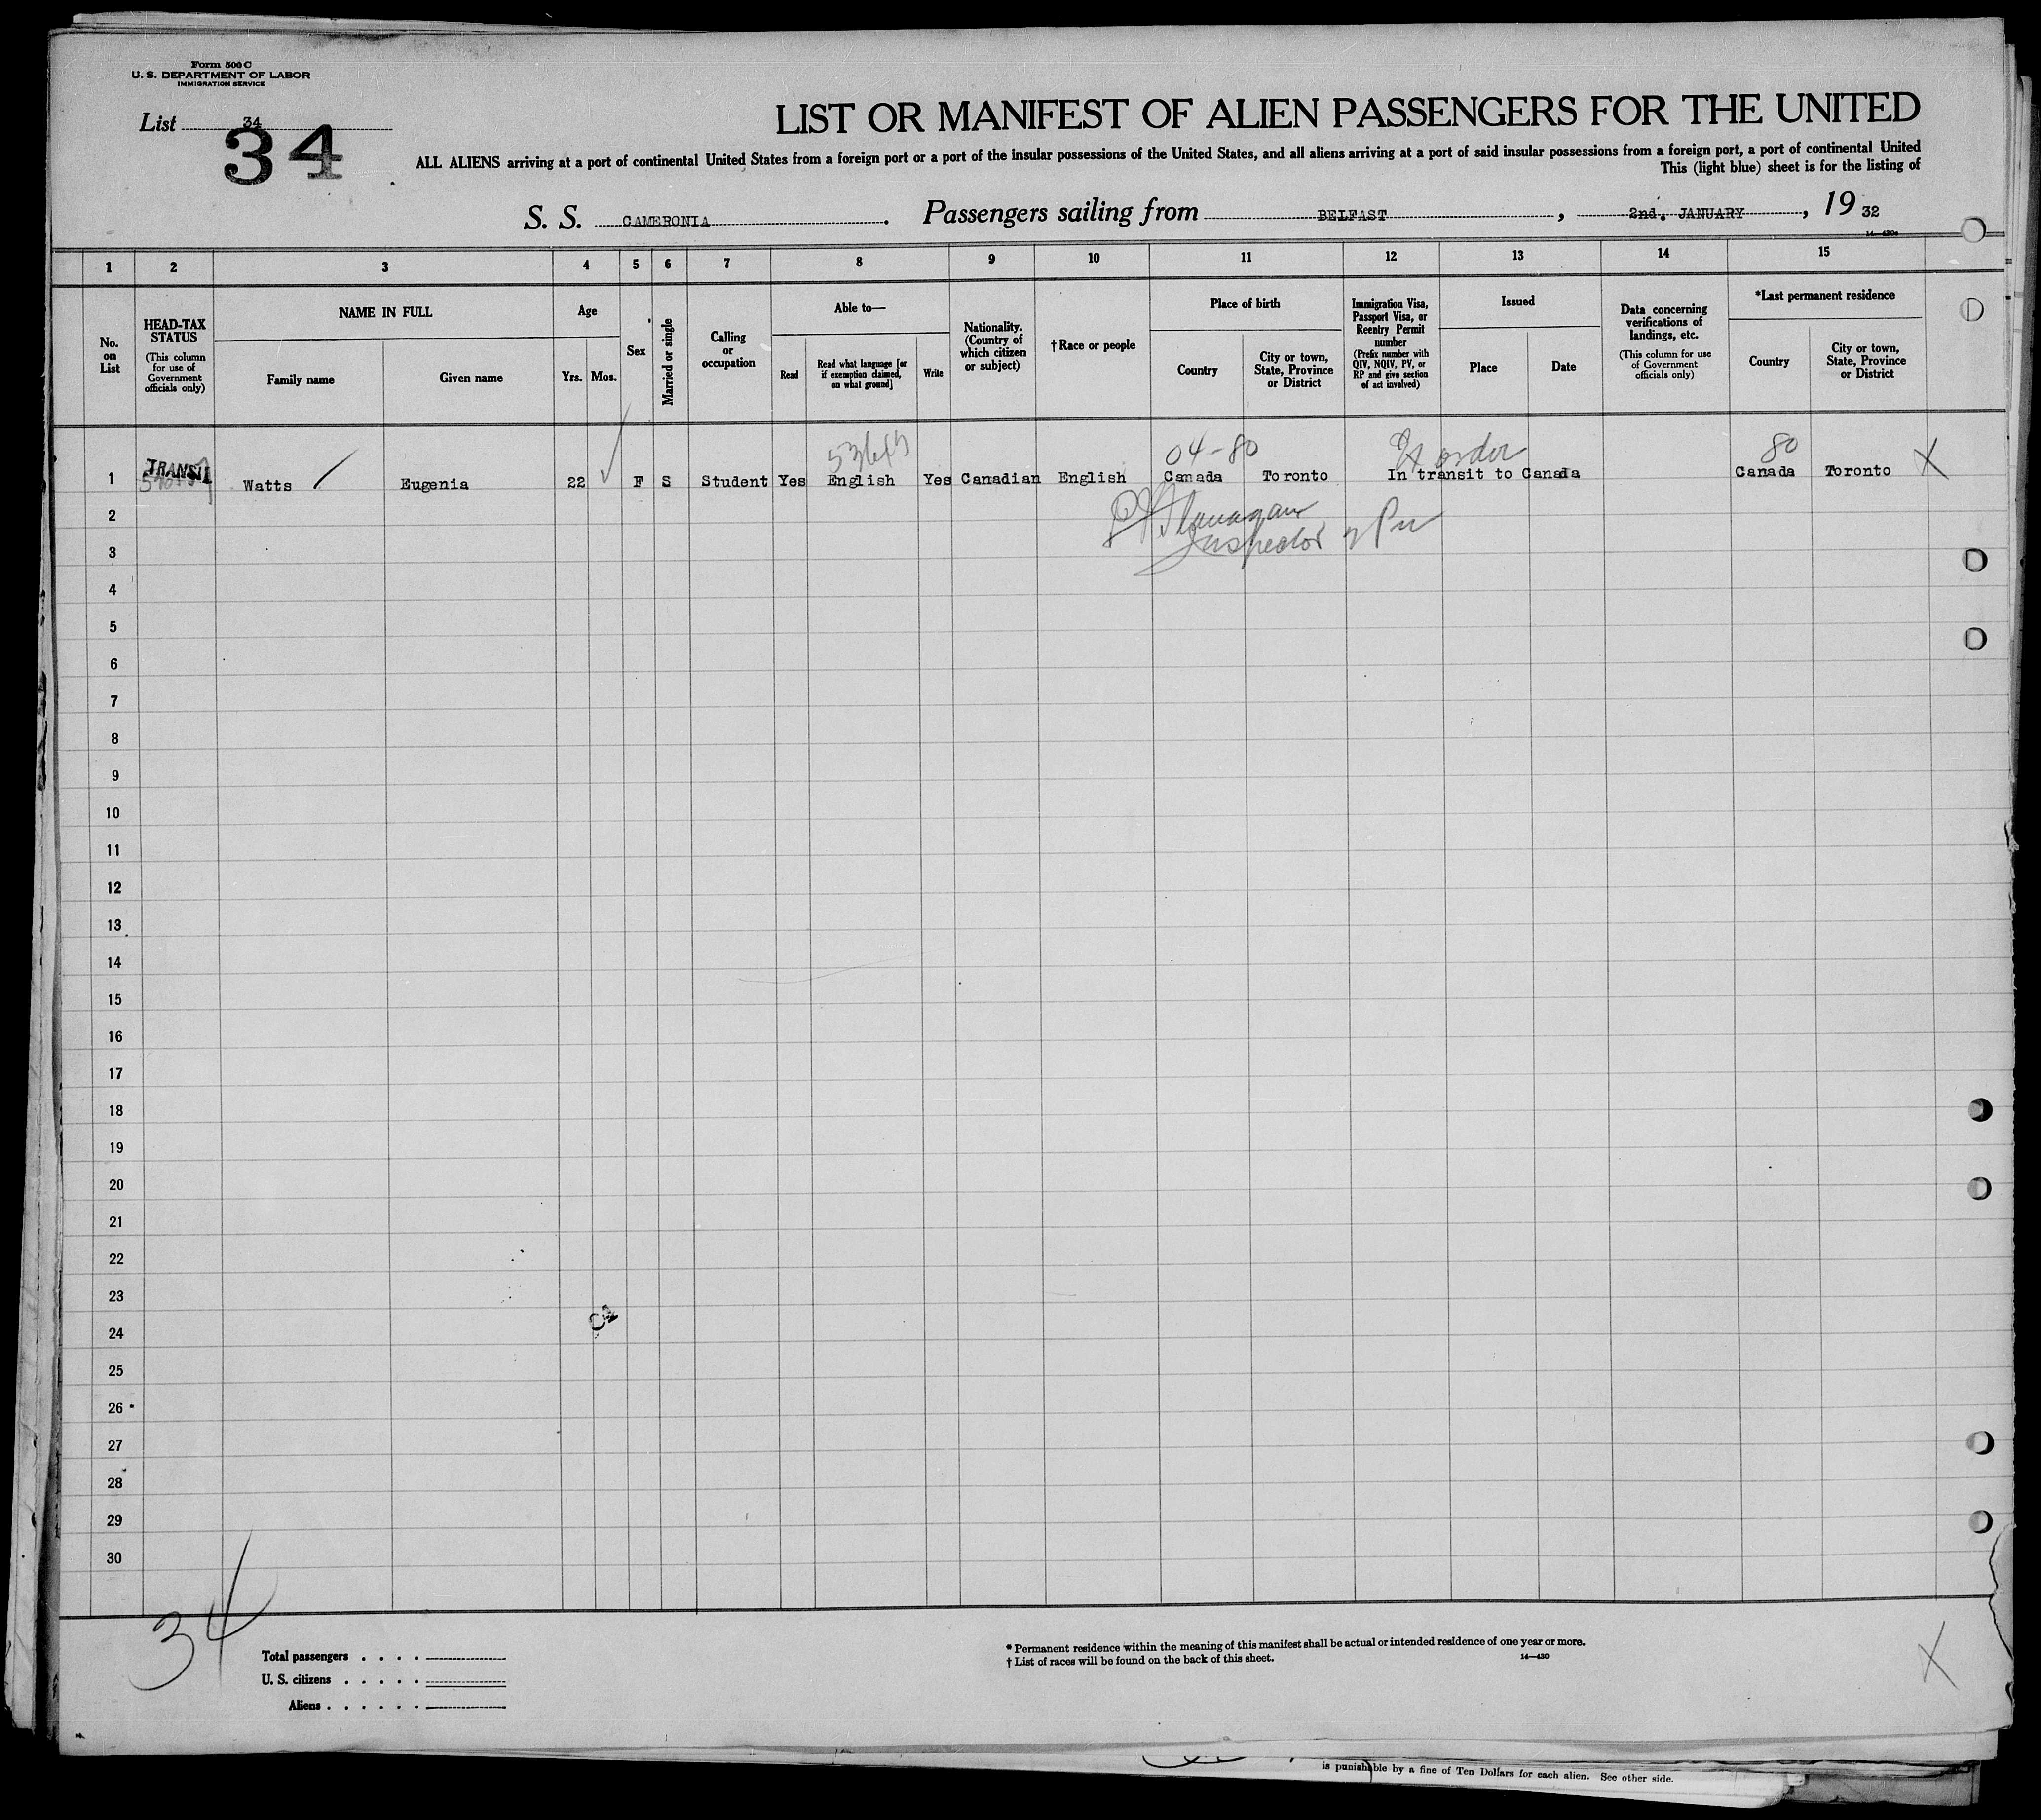 Form 500 C
U. S. DEPARTMENT OF LABOR
IMMIGRATION SERVICE
List 34
34
LIST OR MANIFEST OF ALIEN PASSENGERS FOR THE UNITED
ALL ALIENS arriving at a port of continental United States from a foreign port or a port of the insular possessions of the United States, and all aliens arriving at a port of said insular possessions from a foreign port, a port of continental United
This (light blue) sheet is for the listing of
S. S. CAMERONIA. Passengers sailing from BELFAST, 2nd. JANUARY, 19 32
14—430a
1 2 3 4 5 6 7 8 9 10 11 12 13 14 15
No. on List
HEAD-TAX STATUS
(This column for use of Government officials only)
NAME IN FULL
Family name
Given name
Age
Yrs. Mos.
Sex
Married or single
Calling or occupation
Able to—
Read
Read what language [or if exemption claimed, on what ground]
Write
Nationality. (Country of which citizen or subject)
†Race or people
Place of birth
Country
City or town, State, Province or District
Immigration Visa, Passport Visa, or Reentry Permit number
(Prefix number with QIV, NQIV, PV, or RP and give section of act involved)
Issued
Place
Date
Data concerning verifications of landings, etc.
(This column for use of Government officials only)
*Last permanent residence
Country
City or town, State, Province or District
04-80
80
TRANSIT
1 Watts Eugenia 22 F S Student Yes English Yes Canadian English Canada Toronto In transit to Canada Canada Toronto X
Flanagan
Inspector
2
3
4
5
6
7
8
9
10
11
12
13
14
15
16
17
18
19
20
21
22
23
24
25
26
27
28
29
30
34
Total passengers
U. S. citizens
Aliens
* Permanent residence within the meaning of this manifest shall be actual or intended residence of one year or more.
† List of races will be found on the back of this sheet.
14—430
X
is punishable by a fine of Ten Dollars for each alien. See other side.